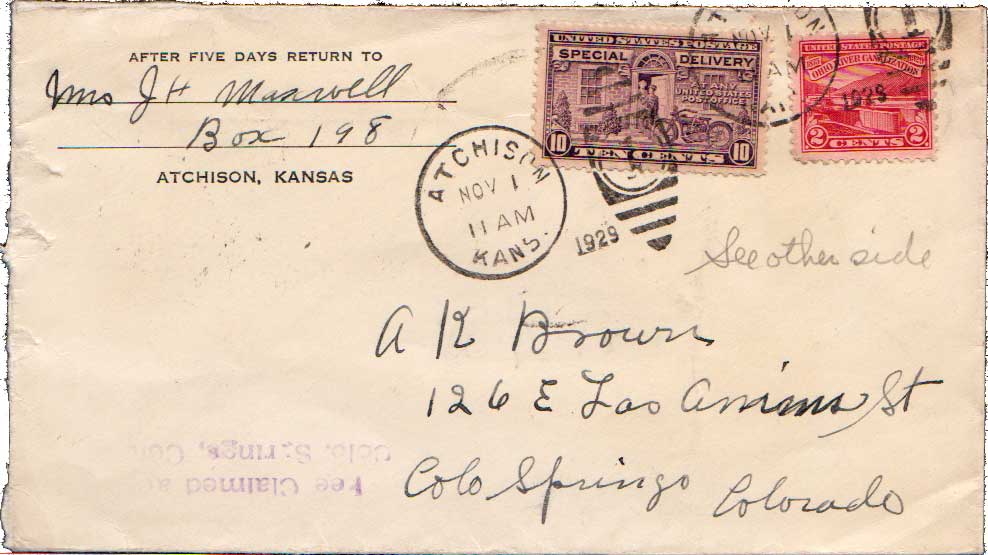 AFTER FIVE DAYS RETURN TO
Mrs J H Maxwell
Box 198
ATCHISON, KANSAS
UNITED STATES POSTAGE
SPECIAL DELIVERY
AT ANY
UNITED STATES
POST OFFICE
10 TEN CENTS 10
UNITED STATES POSTAGE
OHIO RIVER CANALIZATION
2 CENTS 2
NOV 1
AM
1929
ATCHISON
NOV 1
11 AM
KANS.
1929
See other side
A K Brown
126 E Las Animas St
Colo Springs Colorado
Fee Claimed
Colo. Springs,